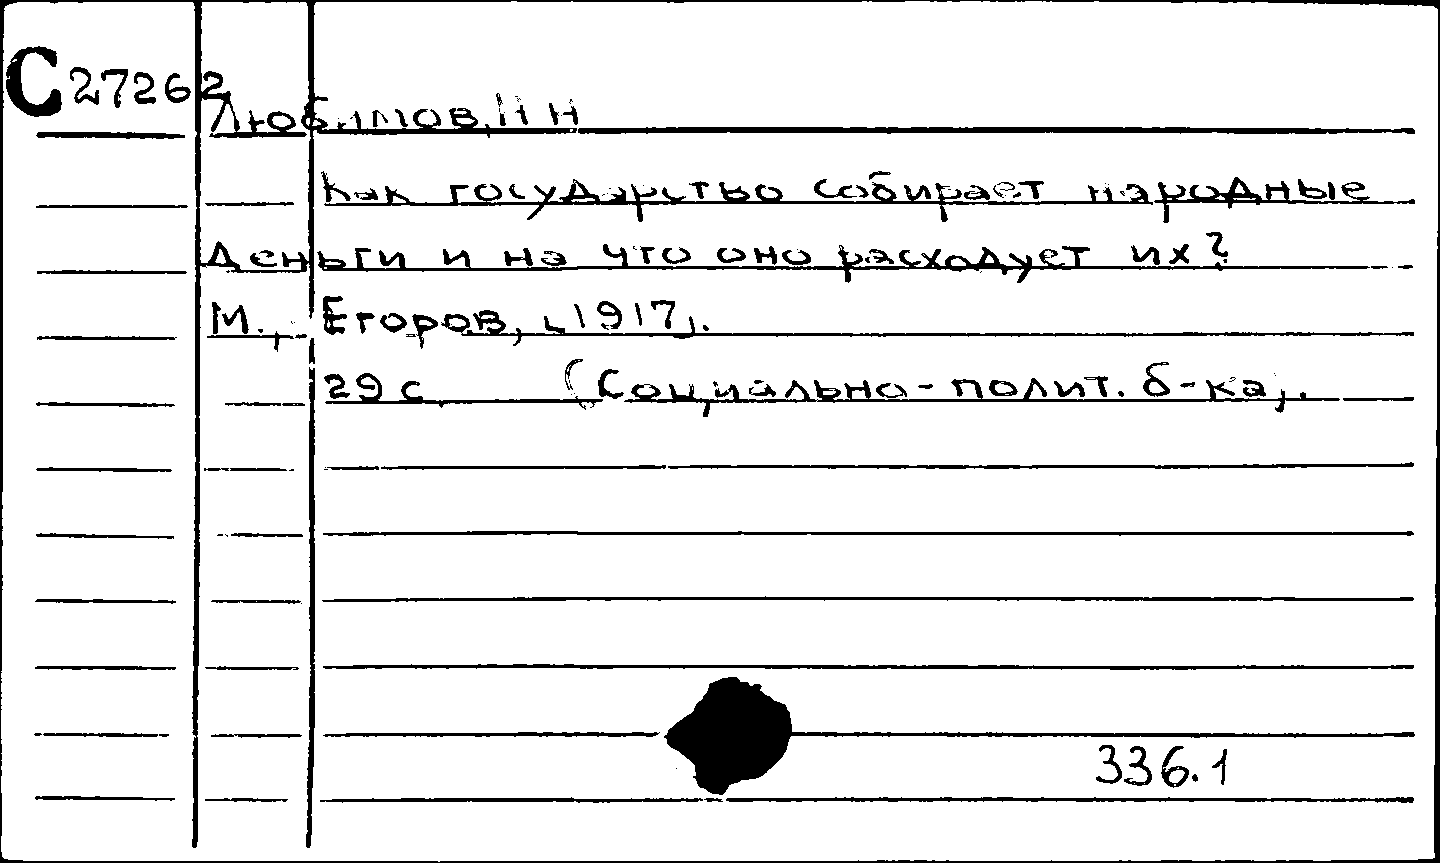 С27262
Любимов, Н Н
Как государство собирает народные
деньги и на что оно расходует их?
М., Егоров, [1917].
29 с. (Социально-полит. б-ка).
336.1